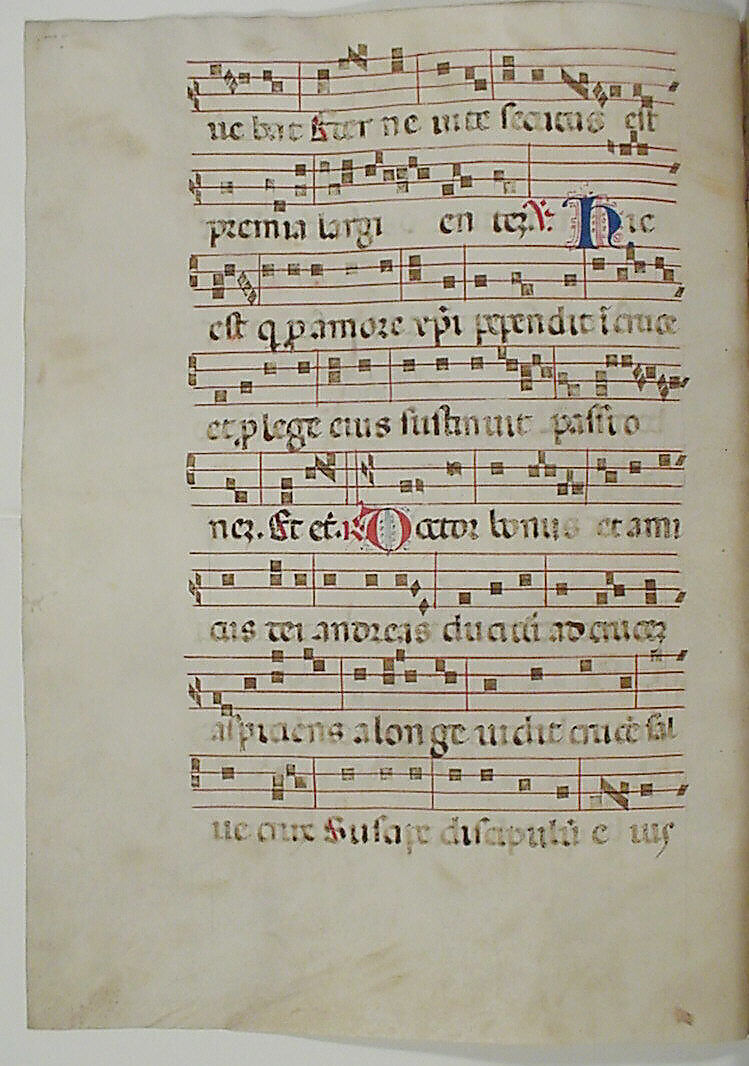 ue bat Eter ne uite secutus est
premia largi en tez. V. Hic
est q p amore xpi pependit i cruce
et p lege eius sustinuit passio
nez. Et et. R. Doctor bonus et ami
cus dei andreas ducitu ad crucez
aspiciens a longe uidit cruce sal
ue crux Susape discipulu e ius